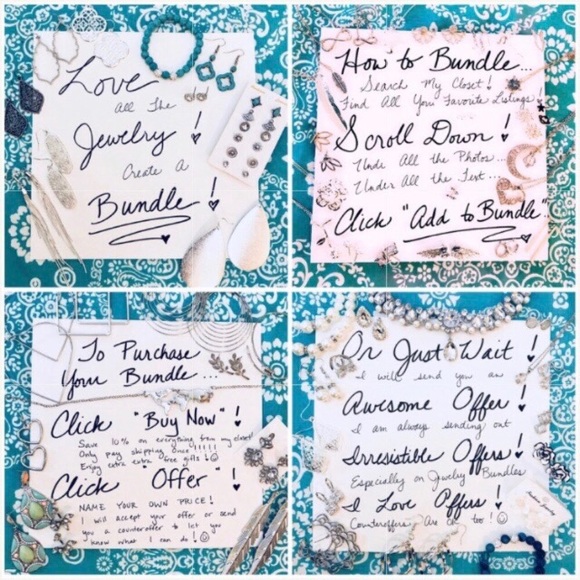 Love
All The
Jewelry!
Create A
Bundle!
How to Bundle...
Search My Closet!
Find All You Favorite Listings!
Scroll Down!
Unde All the Photos...
Under All the Text...
Click "Add to Bundle"
To Purchase
Your Bundle...
Click "Buy Now"!
Save 10% on everything from my closet
Only pay shipping once!!!!!
Enjoy extra extra love gifts!
Click "Offer"!
NAME YOUR OWN PRICE!
I will accept your offer or send
you a counteroffer to let you
know what I can do!
Or Just Wait!
I will send you an
Awesome Offer!
I am always sending out
Irresistible Offers!
Especially on Jewelry Bundles
I Love Offers!
Counteroffers Are ok too!